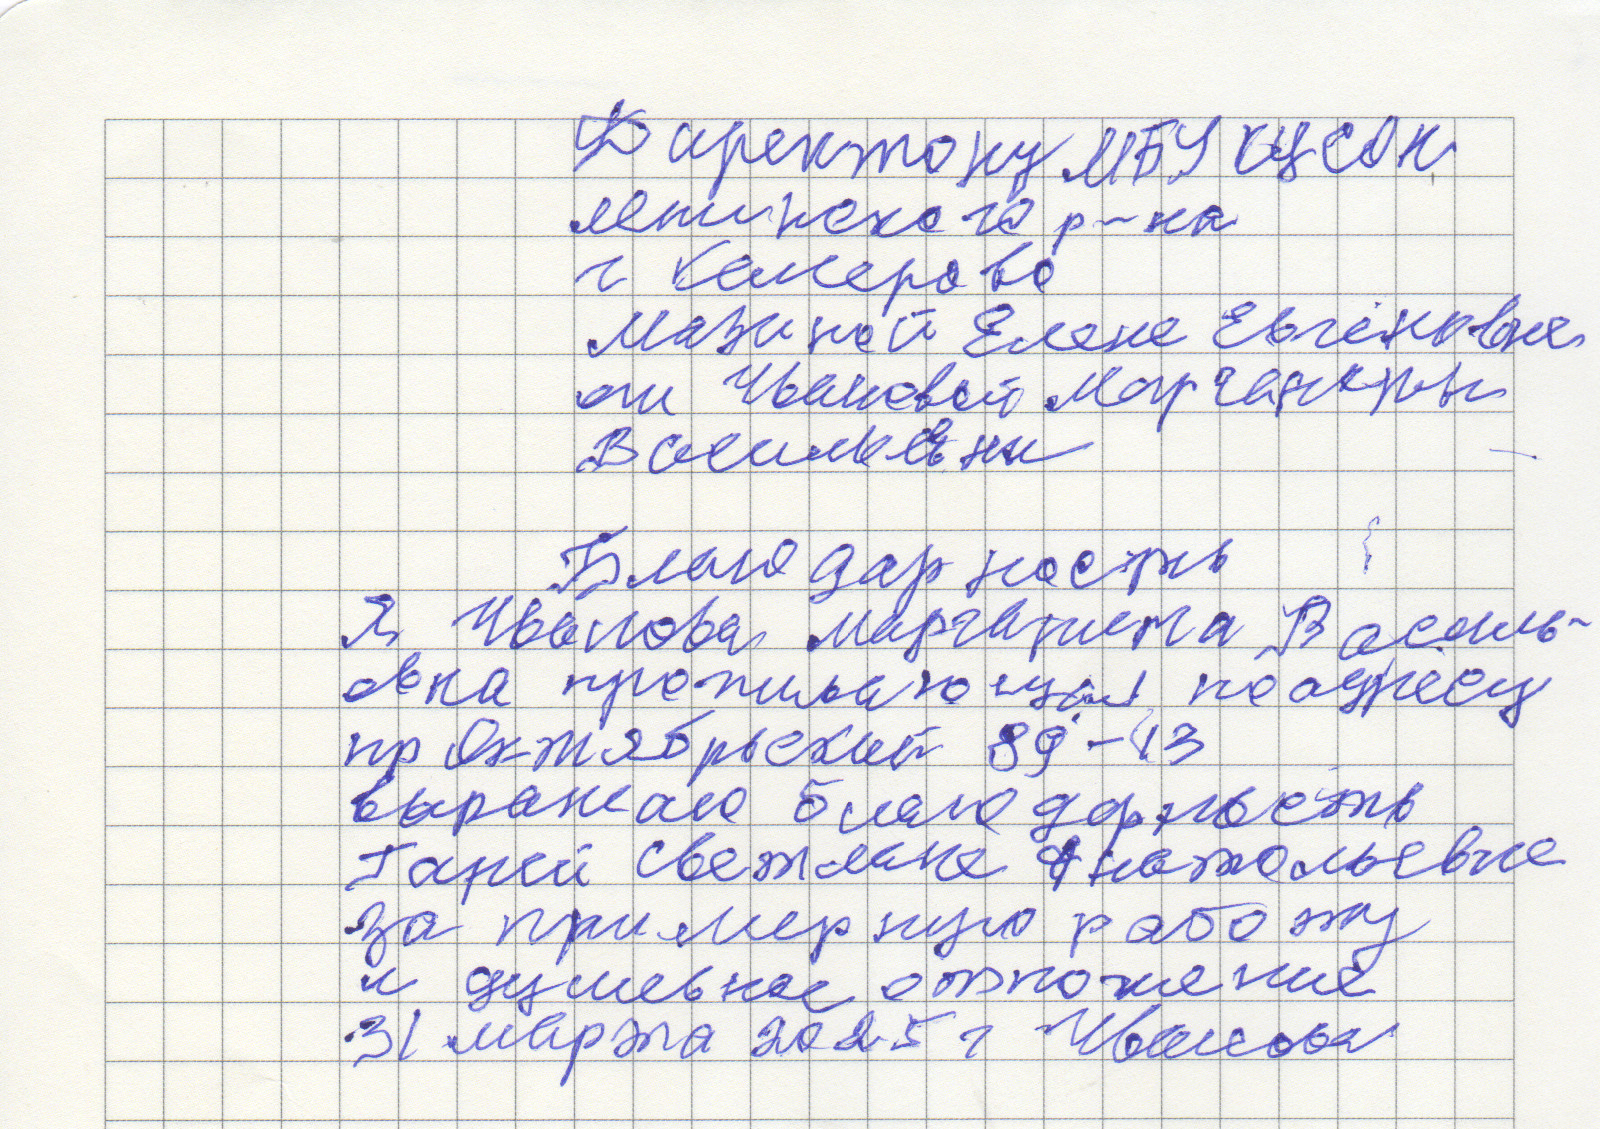 Директору МБУ КЦСОН
Ленинского р-на
г Кемерово
Мазиной Елене Евгеньевне
от Ивановой Маргариты
Васильевны
Благодарность
Я Иванова Маргарита Василь-
евна проживающая по адресу
пр Октябрьский 89-13
выражаю благодарность
Гарей Светлане Анатольевне
за примерную работу
и душевное отношение
31 марта 2025 г Иванова